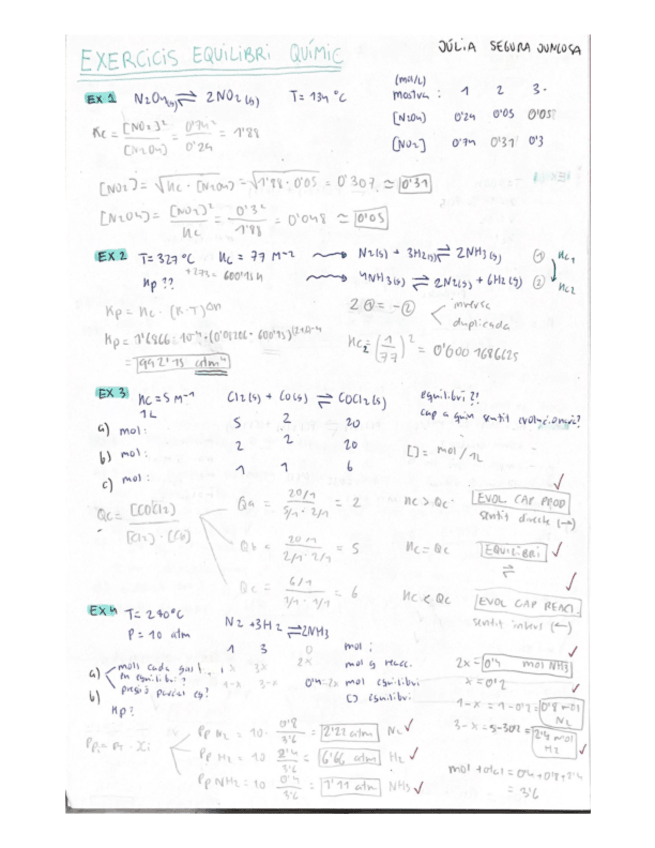 EXERCICIS EQUILIBRI QUÍMIC
JÚLIA SEGURA JUNCOSA
EX 1 N2O4(g) ⇌ 2NO2(g) T= 134 °C
(mol/L)
mostra: 1 2 3
[N2O4] 0'24 0'05 0'05
[NO2] 0'74 0'31 0'3
Kc = [NO2]² / [N2O4] = 0'74² / 0'24 = 1'88
[NO2] = √Kc · [N2O4] = √1'88 · 0'05 = 0'307 ≃ 0'31
[N2O4] = [NO2]² / Kc = 0'3² / 1'88 = 0'048 ≃ 0'05
EX 2 T= 327 °C Kc = 77 M⁻² → N2(g) + 3H2(g) ⇌ 2NH3(g) ① Kc1
Kp ?? → 4NH3(g) ⇌ 2N2(g) + 6H2(g) ② Kc2
Kp = Kc · (R·T)^Δn
2 ① = -② inversa
duplicada
Kc2 = (1/77)² = 0'0001686625
Kp = 1'6866·10⁻⁴ · (0'08206 · 600'15)
= 992'15 atm⁴
EX 3 Kc = 5 M⁻¹ Cl2(g) + CO(g) ⇌ COCl2(g) equilibri?!
1L cap a quin sentit evolucionarà?
a) mol: 5 2 20
b) mol: 2 2 20
[] = mol / 1L
c) mol: 1 1 6
Qc = [COCl2] / [Cl2] · [CO]
Qa = 20/1 / 5/1 · 2/1 = 2 Kc > Qc EVOL CAP PROD ✓
sentit directe (→)
Qb = 20/1 / 2/1 · 2/1 = 5 Kc = Qc EQUILIBRI ✓
⇌
Qc = 6/1 / 1/1 · 1/1 = 6 Kc < Qc EVOL CAP REACT. ✓
sentit invers (←)
EX 4 T= 270°C N2 + 3H2 ⇌ 2NH3
P = 10 atm
1 3 0 mol i
a) mols cada gas en equilibri? x 3x 2x mol q reacc.
1-x 3-x 0'4=2x mol equilibri
pressió parcial eq? [] equilibri
b) Kp?
2x = 0'4 mol NH3 ✓
x = 0'2
1-x = 1-0'2 = 0'8 mol N2 ✓
2'4 mol H2 ✓
Ppi = PT · Xi
Pp N2 = 10 · 0'8 / 3'6 = 2'22 atm N2 ✓
Pp H2 = 10 2'4 / 3'6 = 6'66 atm H2 ✓
Pp NH2 = 10 0'4 / 3'6 = 1'11 atm NH3 ✓
mol total = 0'4 + 0'8 + 2'4
= 3'6